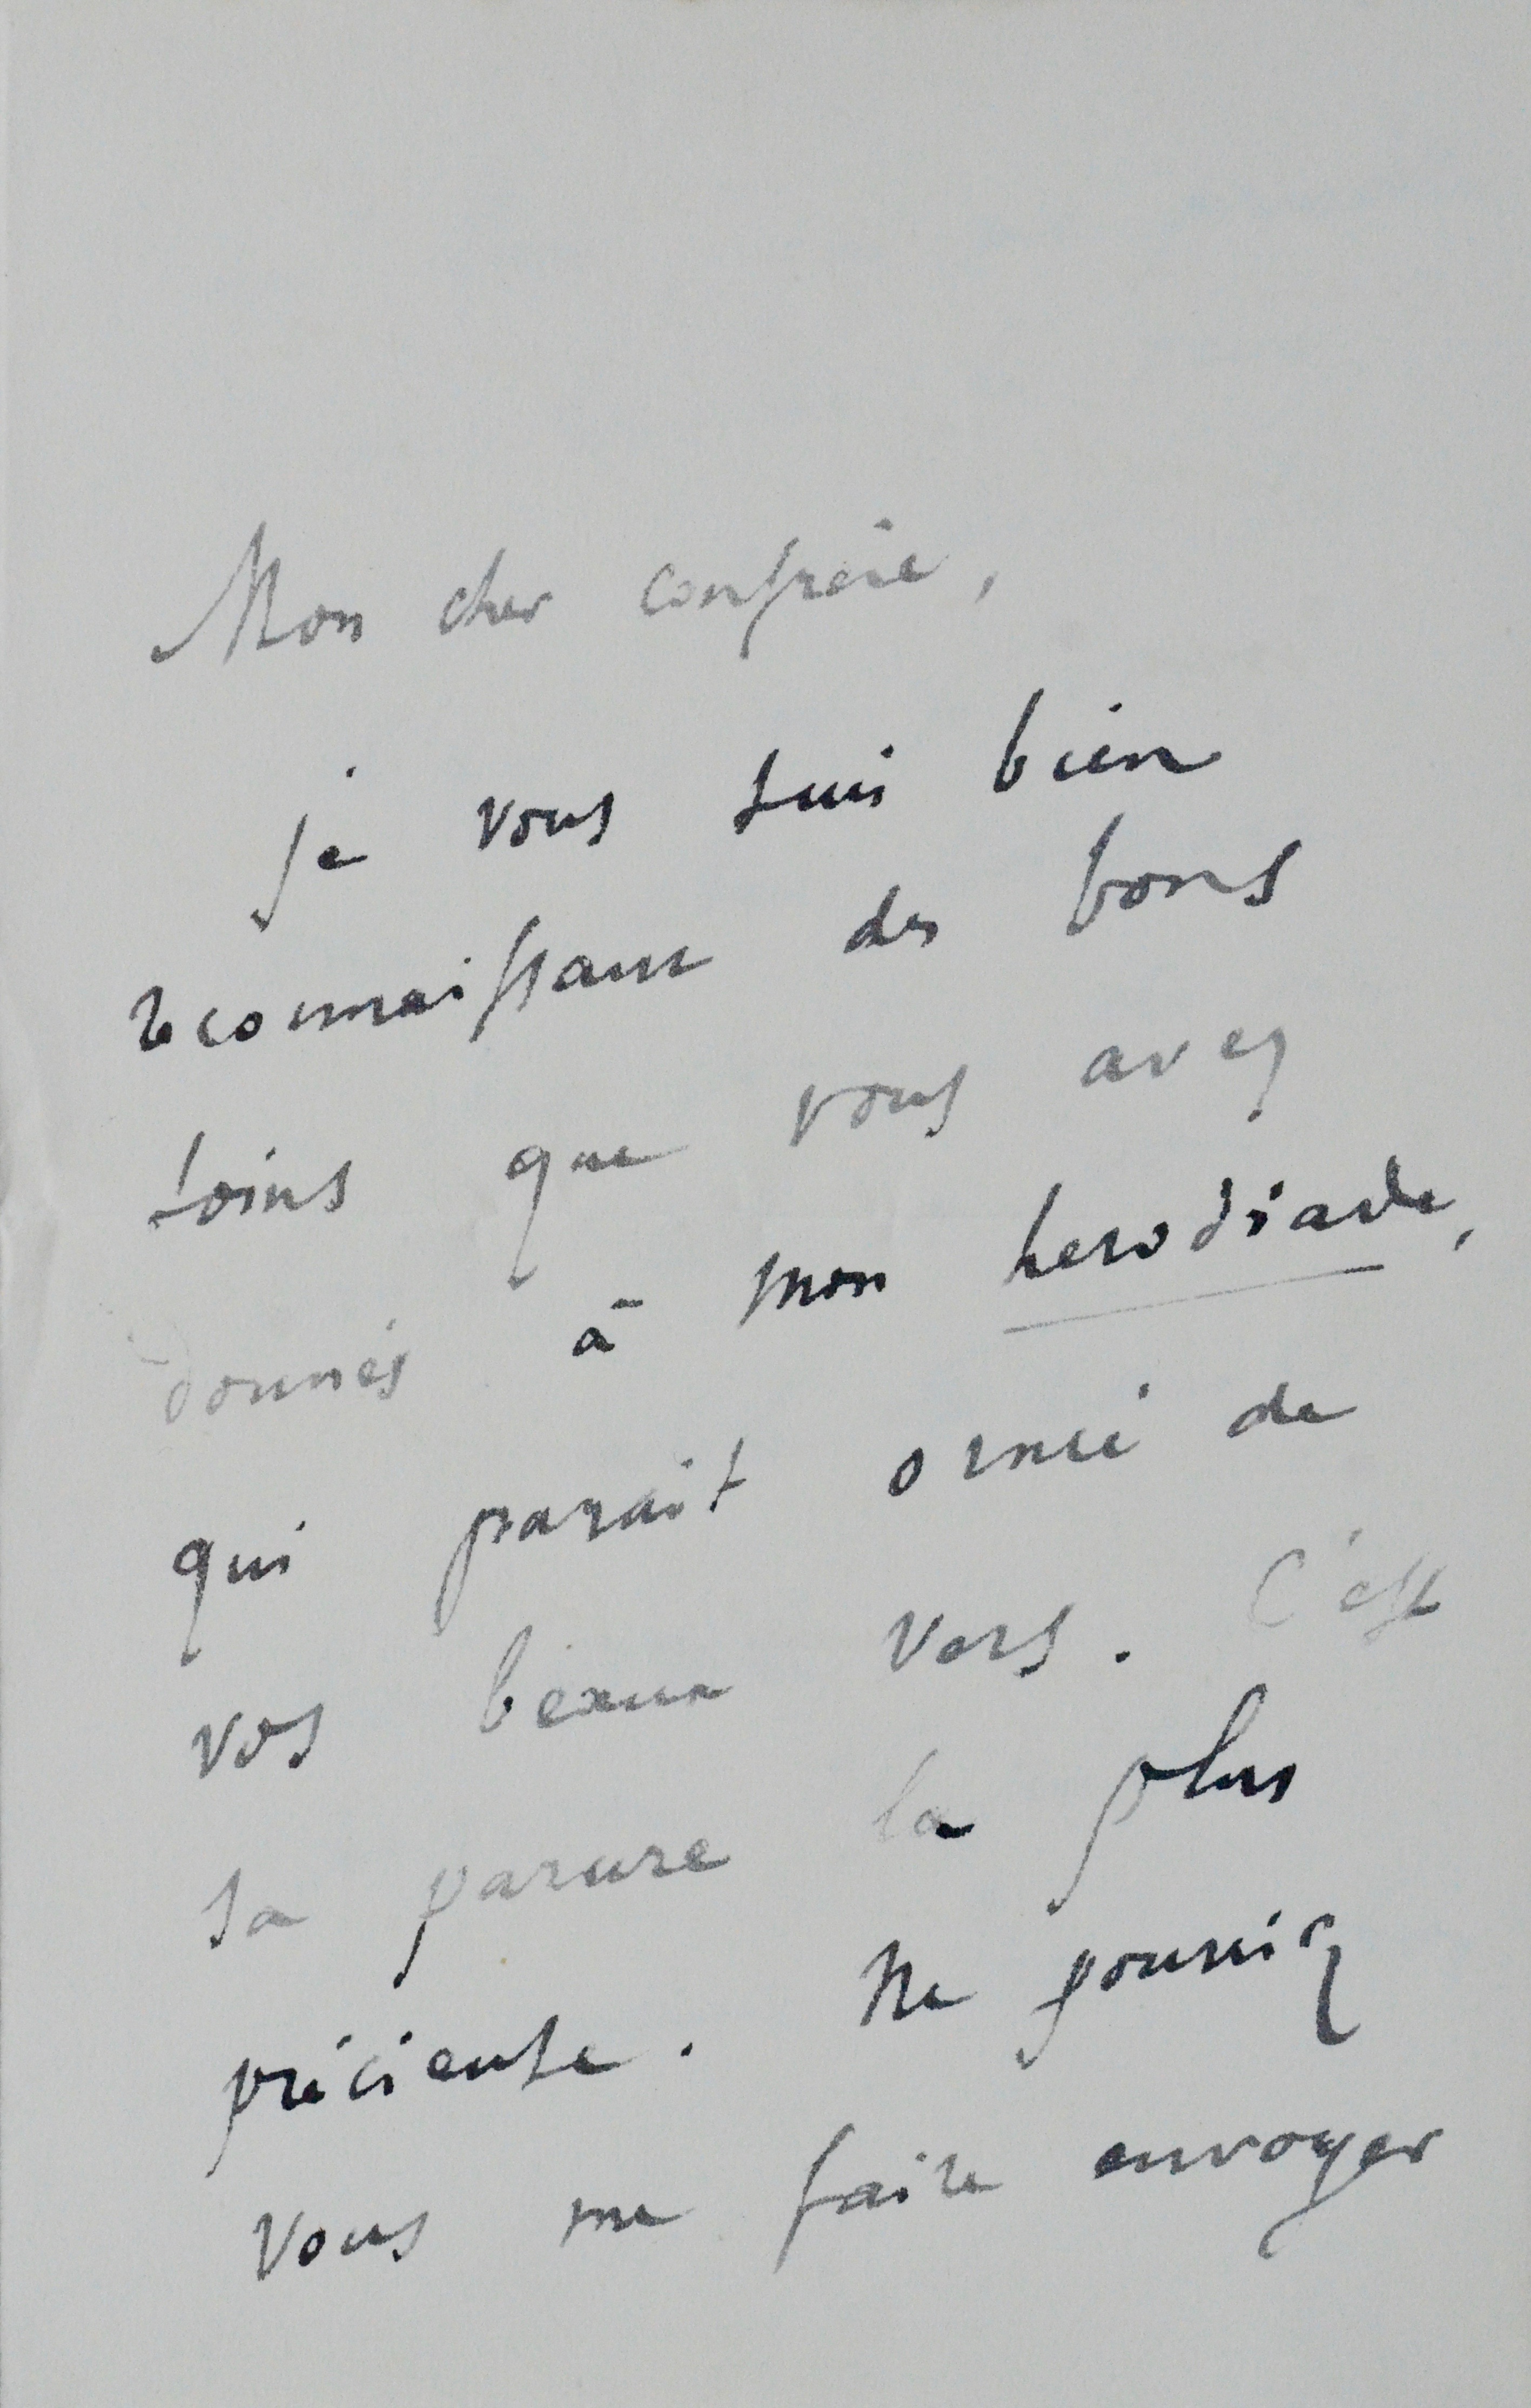 Mon cher confrère,
je vous suis bien
reconnaissant des bons
soins que vous avez
donnés à mon herodiade,
qui parait orné de
vos beaux vers. C'est
sa parure la plus
précieuse. Ne pourriez
vous me faire envoyer